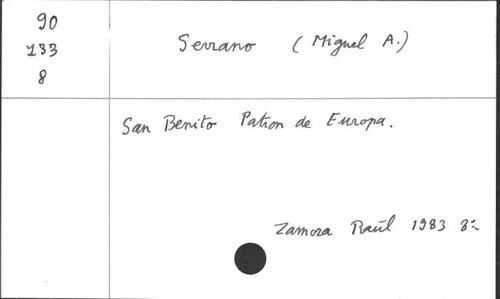 90
133
8
Serrano (Miguel A.)
San Benito Patron de Europa.
Zamora Raúl 1983 8º